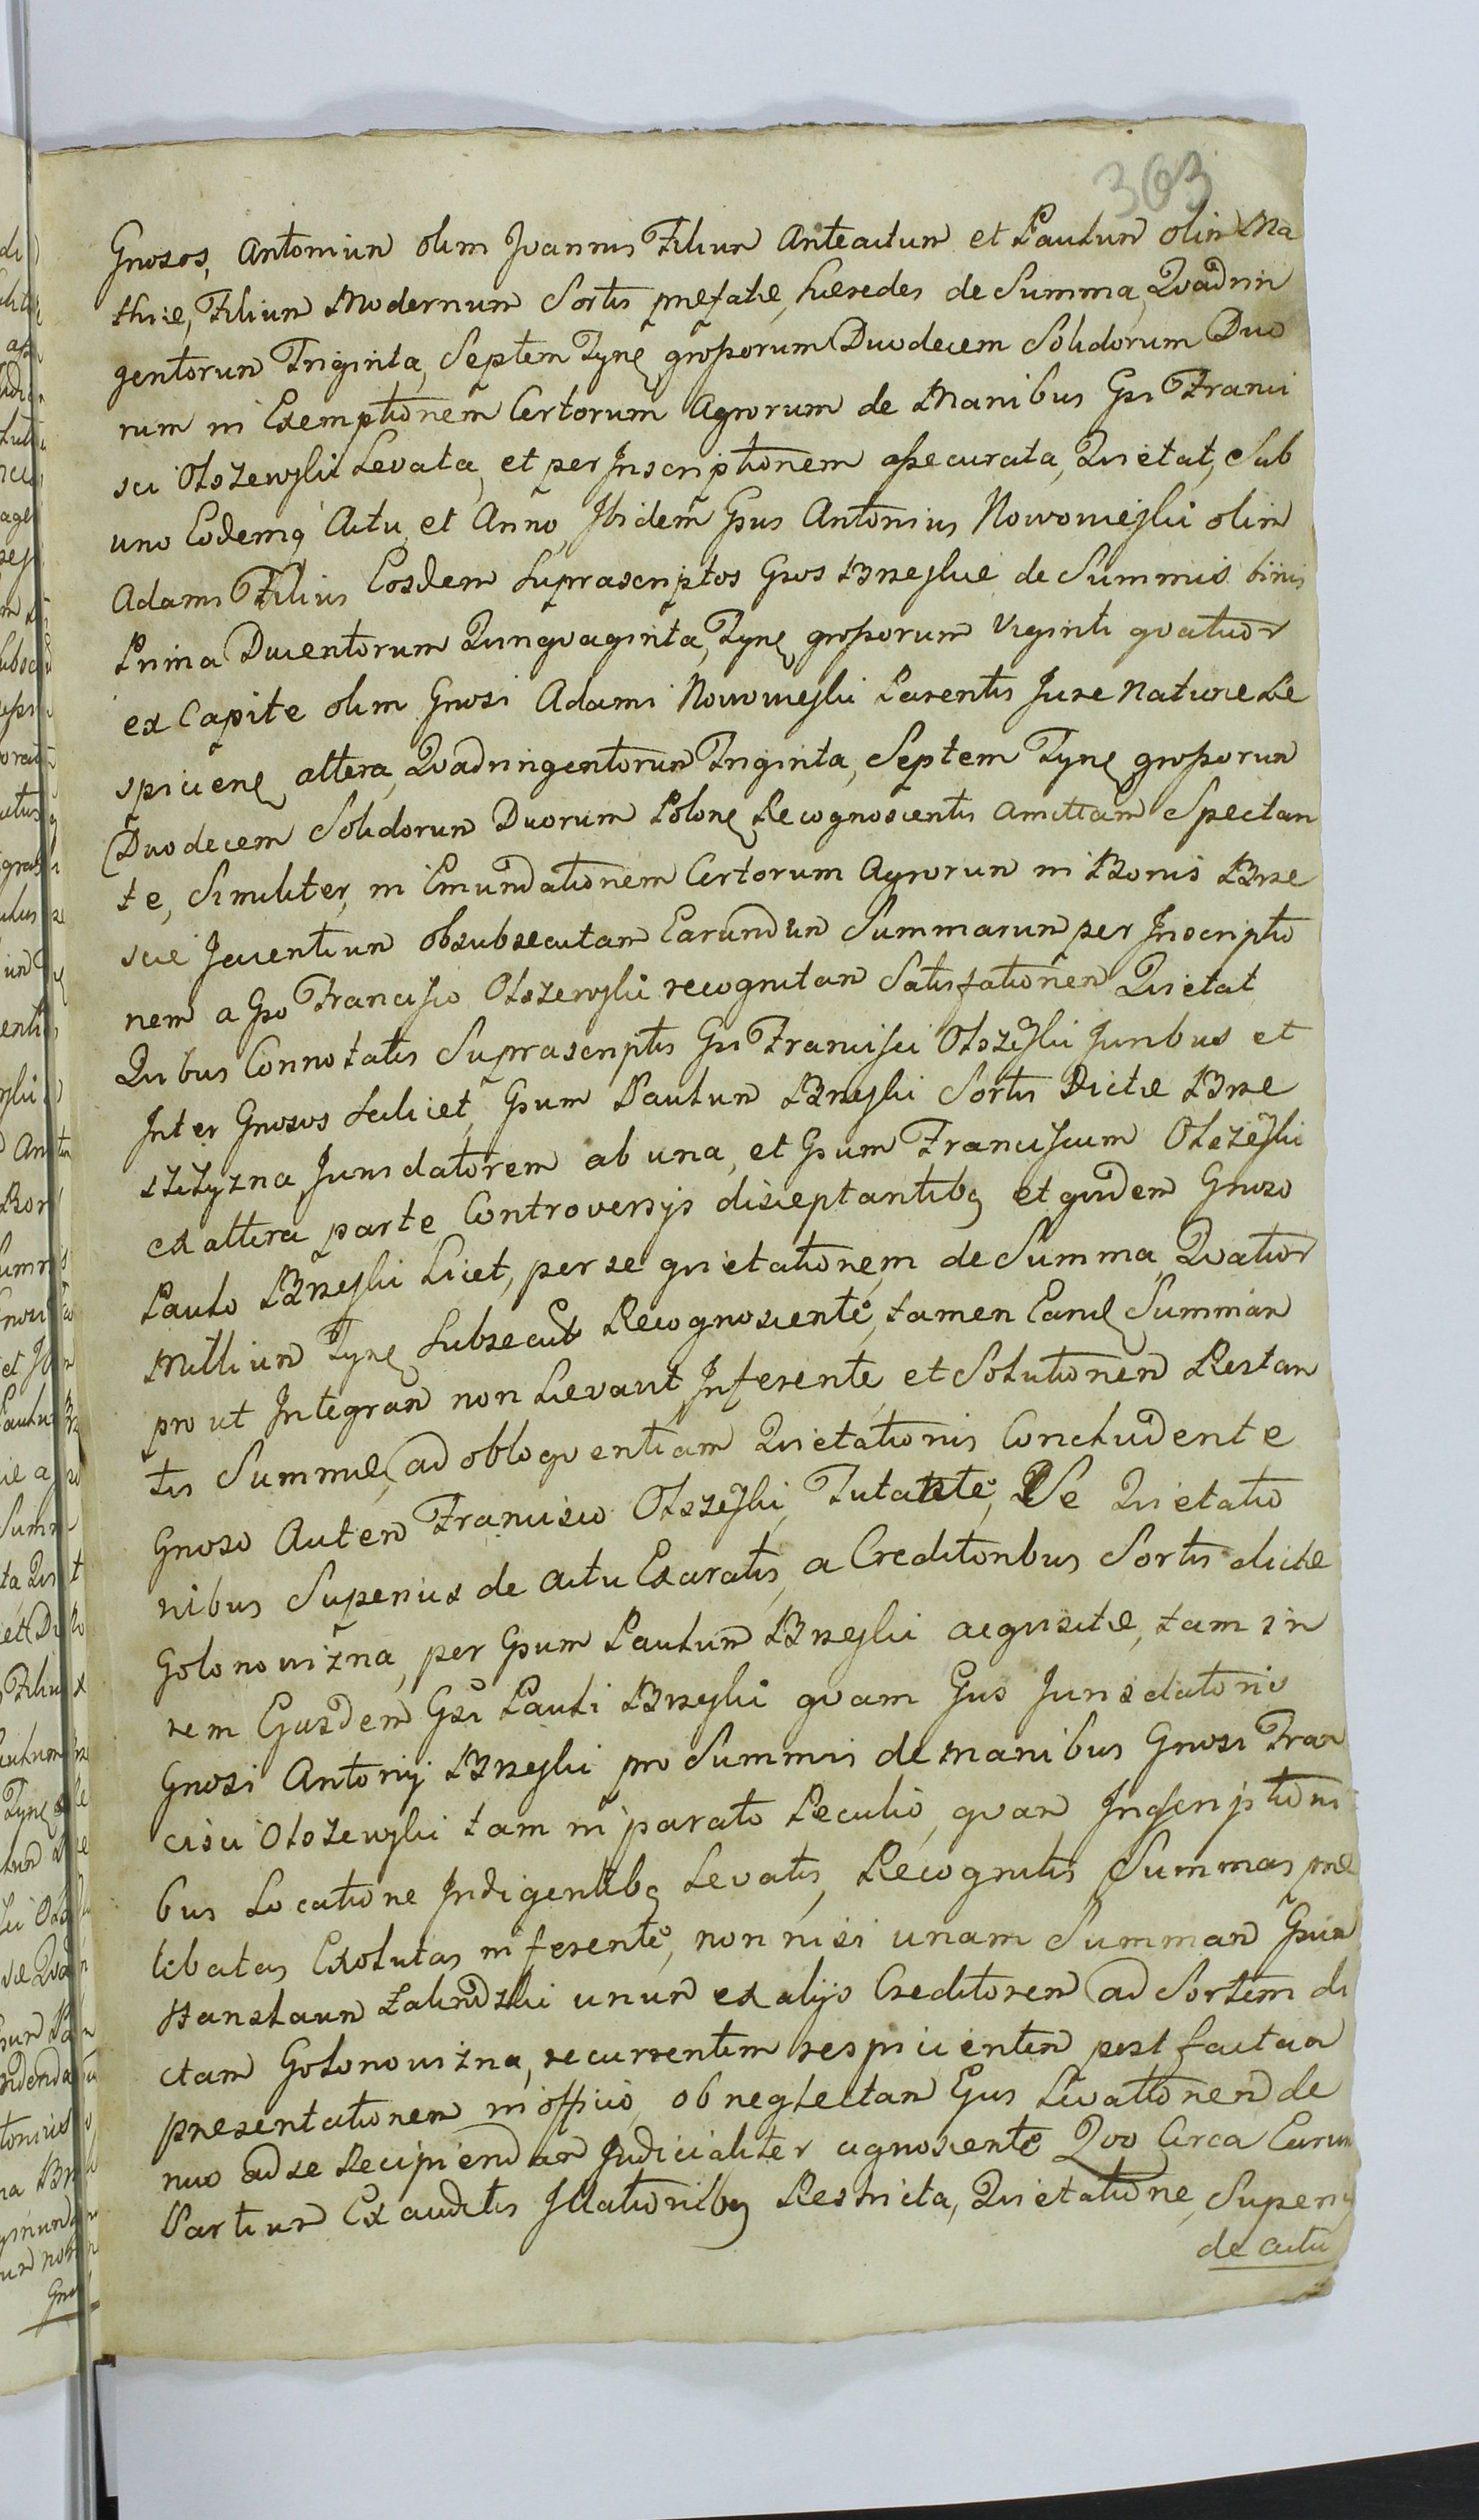 363
Gnosos, Antonium olim Joannis Filium Anteactum et Paulum olim Ma
thiæ, Filium Modernum Sortis præfatæ, hæredes de Summa, Qvadrin
gentorum Triginta, Septem Tynf. grossorum Duodecem Solidorum Duo
rum in Exemptionem Certorum Agrorum de Manibus Gsi Franci
sci Olszewski Levata, et per Inscriptionem assecurata, Qvietat, Sub
uno Eodemq Actu, et Anno, Ibidem Gsus Antonius Nowowieyski olim
Adami Filius Eosdem Suprascriptos Gsos Brzeskie de Summis binis
Prima Ducentorum Qvinqvaginta, Tynf. grossorum Viginti qvatuor
ex Capite olim Gnosi Adami Nowowieyski Parentis Jure Naturæ Re
spicien. altera, Qvadringentorum Triginta, Septem Tynf. grossorum
Duodecem Solidorum Duorum Polon. Recognoscentis Amittam Spectan
te, Similiter, in Emundationem Certorum Agrorum in Bonis Brze
scie Jacentium obsubsecutam Earundum Summarum per Inscriptio
nem a Gso Francisco Olszewski recognitam Satisfationem Qvietat
Qvibus Connotatis Suprascriptis Gsi Francisci Olszeski Juribus et
Inter Gnosos Scilicet, Gsum Paulum Brzeski Sortis Dictæ Brze
szczyzna Jurisdatorem ab una, et Gsum Franciscum Olszeski
ex altera parte, Controversijs disceptantibq et qvidem Gnoso
Paulo Brzeski Licet, per se qvietationem de Summa, Qvatuor
Millium Tynf. Subsecut Recognoscente, tamen Eand. Summam
pro ut Integram non Levavit, Inferente, et Solutionem Restan
tis Summæ, ad obloqventiam Qvietationis Concludente
Gnoso Autem Francisco Olszeski, Tutante, Se Qvietatio
nibus Superius de actu Exaratis, a Creditoribus Sortis dictæ
Golonowizna, per Gsum Paulum Brzeski acqvisitæ, tam in
rem Ejusdem Gsi Pauli Brzeski qvam Ejus Jurisdatoris
Gnosi Antonij Brzeski pro Summis de Manibus Gnosi Fran
cisci Olszewski tam in parato Peculio, qvam Inscriptioni
bus Locatione Indigentibq Levatis, Recognitis Summas præ
libatas Exolutas inferente, non nisi unam Summam Gsum
Stanslaum Zalindzki unum ex alijs Creditorem ad Sortem di
ctam Golonowizna, recurrentem respicientem post factam
præsentationem in officio, ob neglectam Ejus Levationem de
nuo ad se Recipiendam Judicialiter agnoscente Qvo Circa Earum
Partium Exauditis Illationibq Restricta, Qvietatione, Superiq
de actu